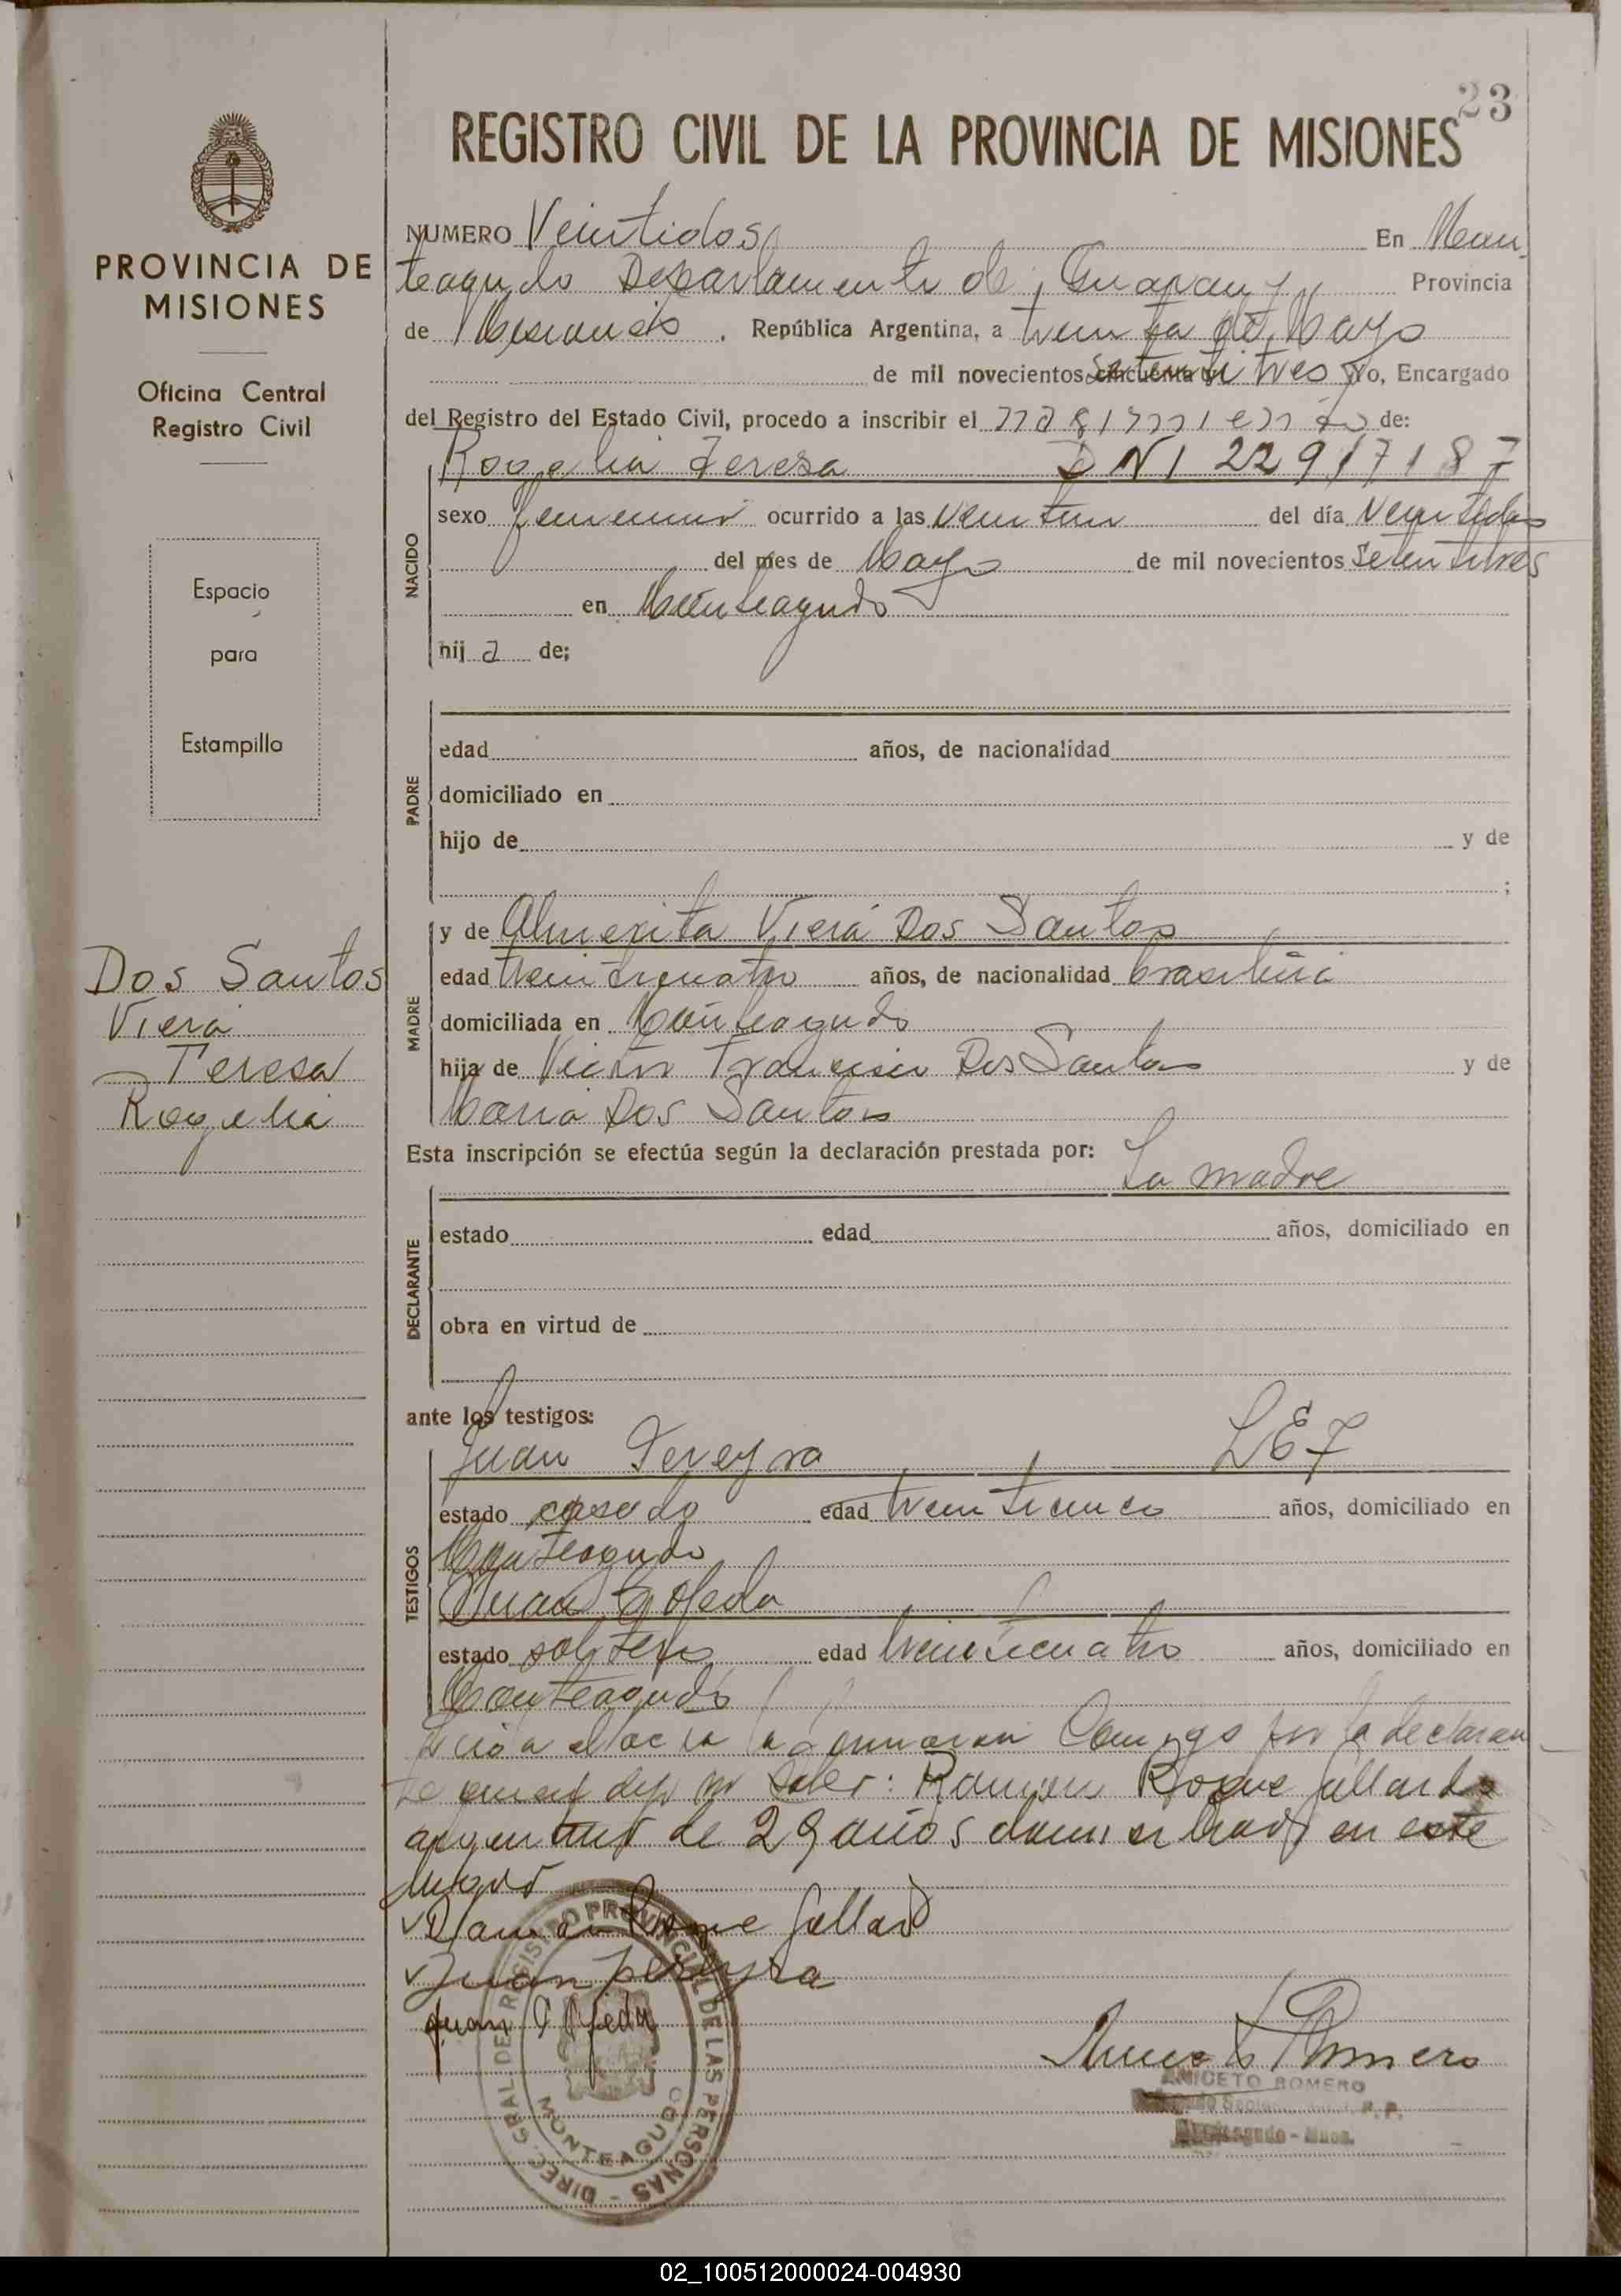 23
REGISTRO CIVIL DE LA PROVINCIA DE MISIONES
PROVINCIA DE
MISIONES
Oficina Central
Registro Civil
Espacio
para
Estampilla
Dos Santos
Viera
Teresa
Rogelia
NUMERO Veintidos En Mon
teagudo Departamento de Guarany Provincia
de Misiones . República Argentina, a treinta de Mayo
de mil novecientos cincuenta y setentitres Yo, Encargado
del Registro del Estado Civil, procedo a inscribir el nacimiento de:
NACIDO
Rogelia Teresa DNI 22917187
sexo femenino ocurrido a las veintiun del día veintidos
del mes de Mayo de mil novecientos setentitres
en Monteagudo
hij a de;
PADRE
edad años, de nacionalidad
domiciliado en
hijo de y de
;
MADRE
y de Almerita Viera Dos Santos
edad treinticuatro años, de nacionalidad brasileña
domiciliada en Monteagudo
hija de Victor Francisco Dos Santos y de
Maria Dos Santos
Esta inscripción se efectúa según la declaración prestada por: La madre
DECLARANTE
estado edad años, domiciliado en
obra en virtud de
ante los testigos:
TESTIGOS
Juan Pereyra LE7
estado casado edad treinticinco años, domiciliado en
Monteagudo
Juan Ojeda
estado soltero edad treinticuatro años, domiciliado en
Monteagudo
Leida el acta la firmaran Conmigo por la declaran
te quien dijo no saber: Ramon Roque Gallardo
argentino de 29 años domiciliado en este
lugar
Ramon Roque Gallard
Juan pereyra
Juan Ojeda
DIREC. GRAL. DEL REGISTRO PROVINCIAL DE LAS PERSONAS -
MONTEAGUDO
Aniceto Romero
ANICETO ROMERO
R. P.
Monteagudo - Mnes.
02_100512000024-004930